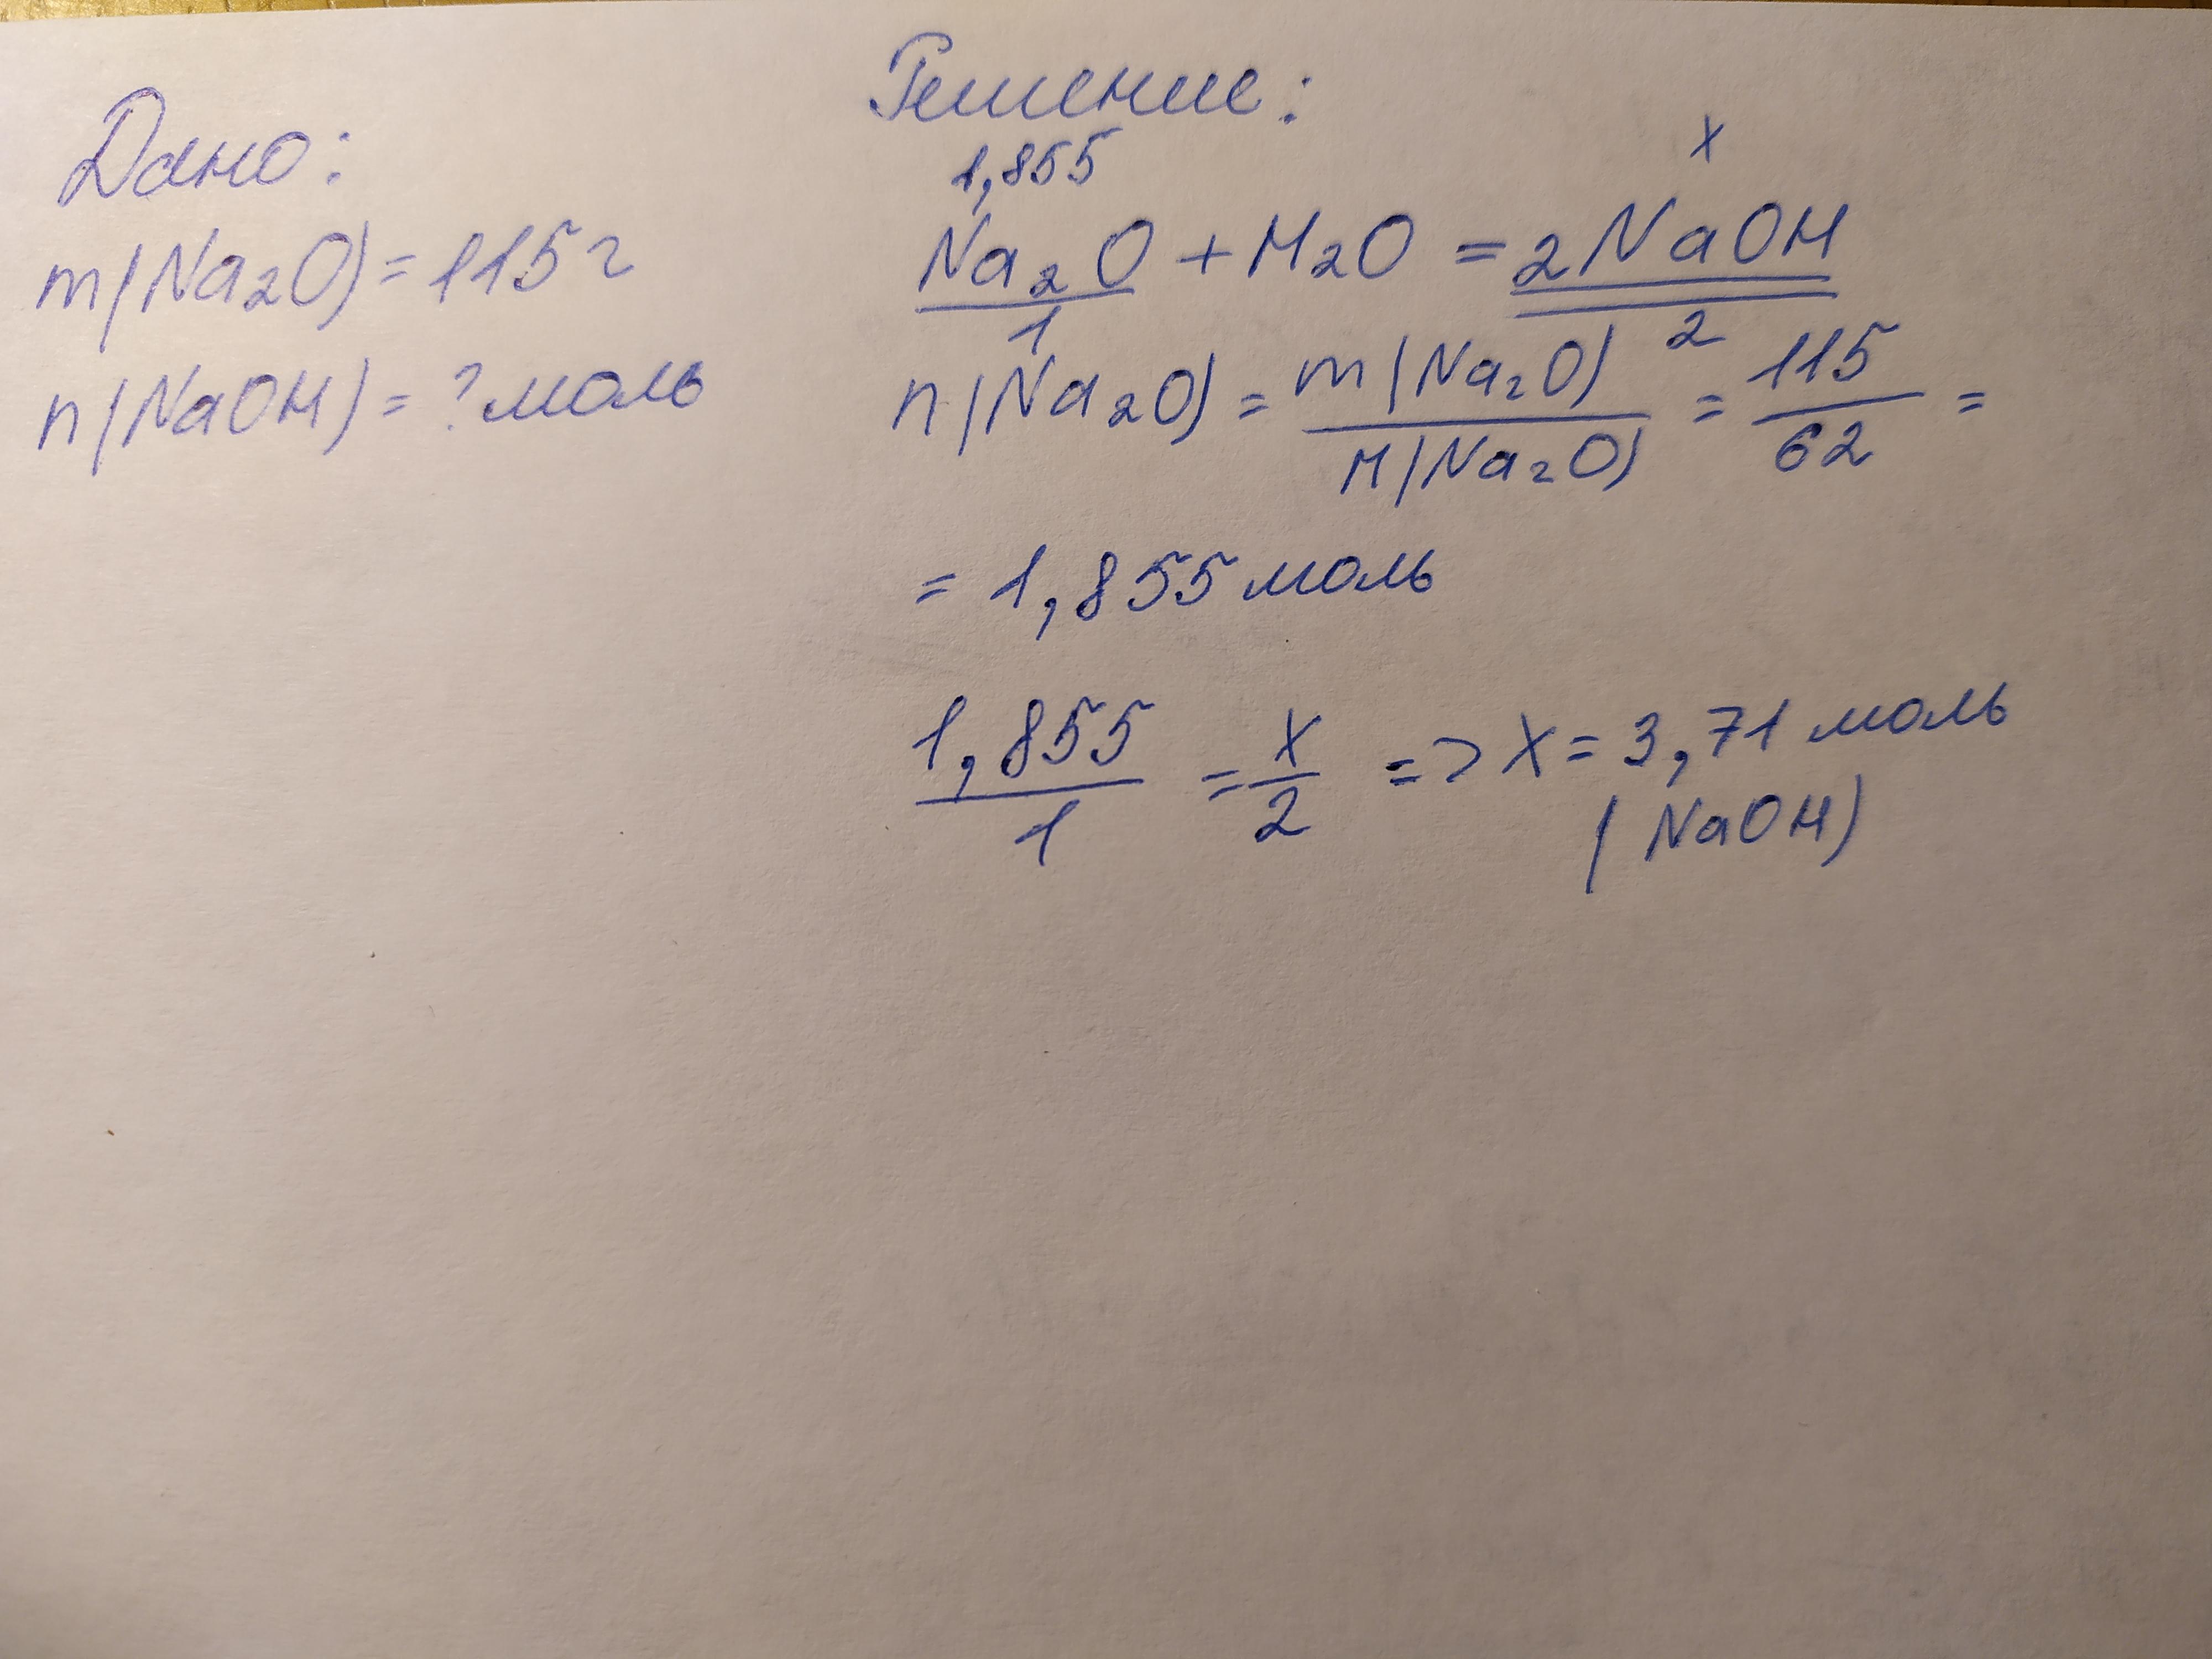 Дано:
m(Na₂O) = 115 г
n(NaOH) = ? моль
Решение:
1,855 x
Na₂O + H₂O = 2NaOH
1 2
n(Na₂O) = m(Na₂O) / M(Na₂O) = 115 / 62 =
= 1,855 моль
1,855 / 1 = x / 2 => x = 3,71 моль
(NaOH)